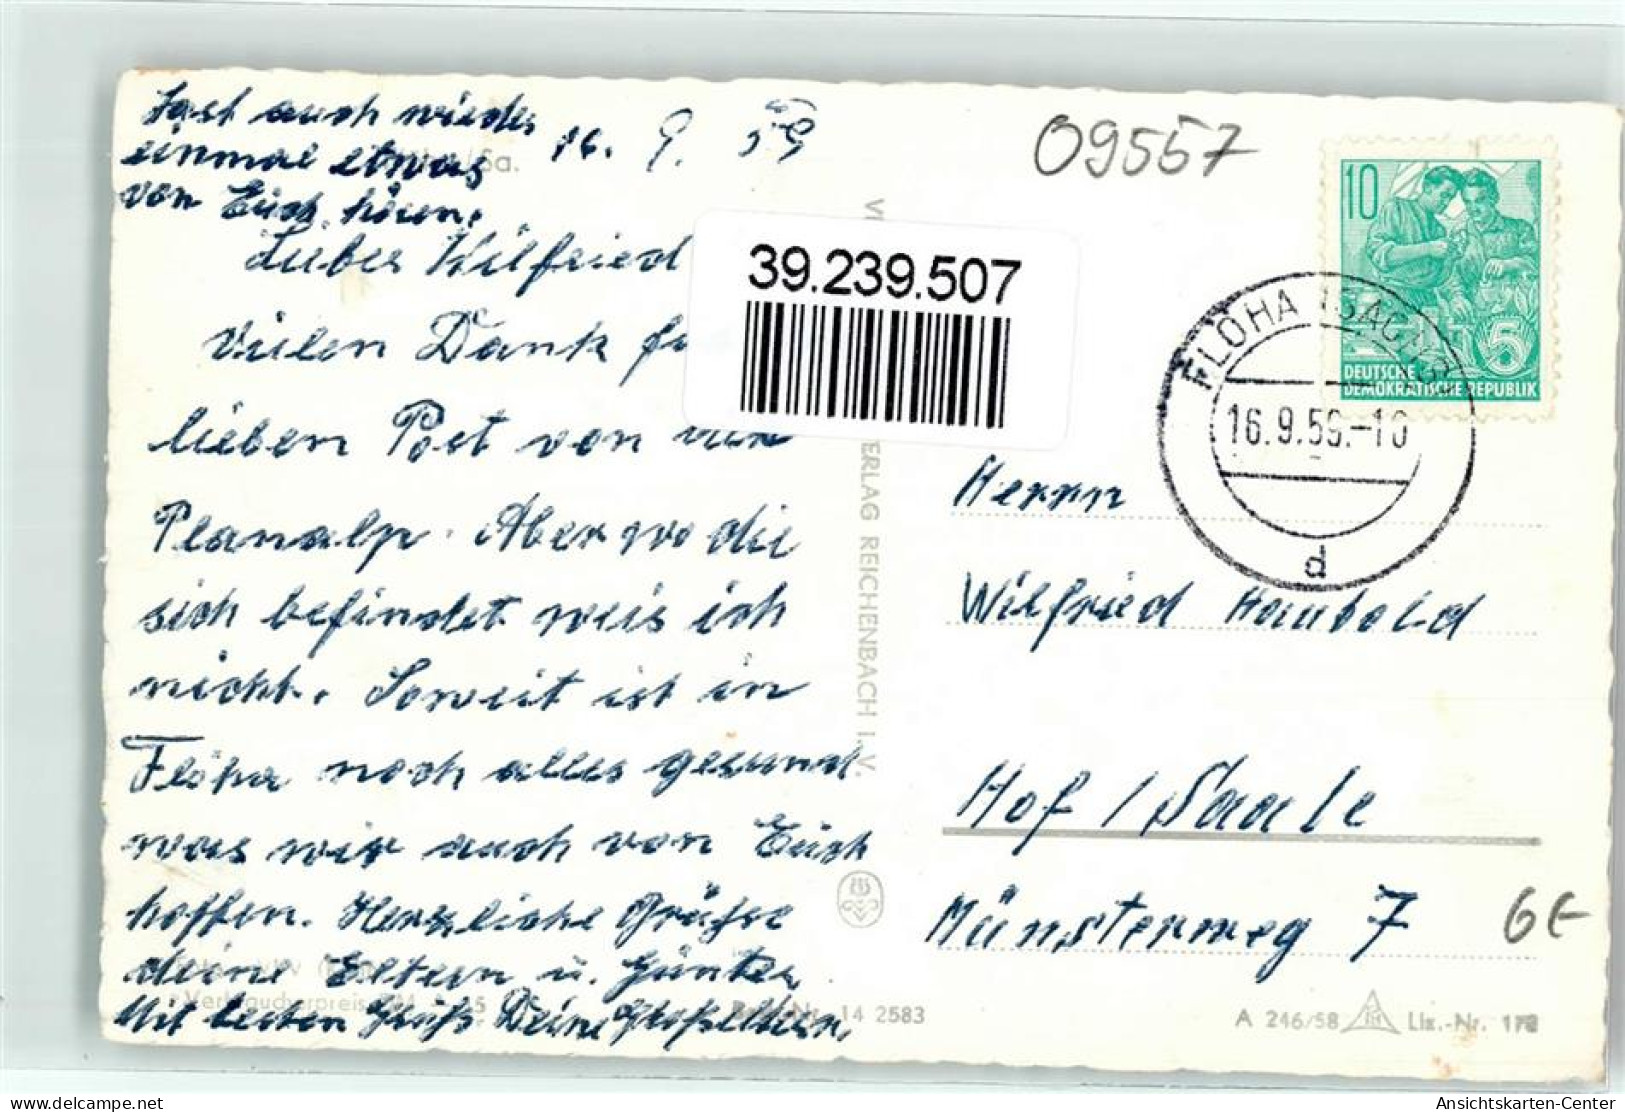 Last auch wieder
einmal etwas
von Euch hören.
16. 9. 59
09557
/Sa.
Lieber Wilfried
vielen Dank
lieben Post von der
Planalp. Aber wo die
sich befindet weis ich
nicht. Soweit ist in
Flöha noch alles gesund
was wir auch von Euch
hoffen. Herzliche Grüße
deine Eltern u. Günter
Mit besten Gruß Deine Großeltern.
39.239.507
ERLAG REICHENBACH I. V.
10
DEUTSCHE
DEMOKRATISCHE REPUBLIK
FLÖHA (SACHS)
16.9.59.-10
d
Herrn
Wilfried Haubold
Hof / Saale
Münsterweg 7
6€
14 2583
A 246/58
Liz.-Nr.
Ansichtskarten-Center